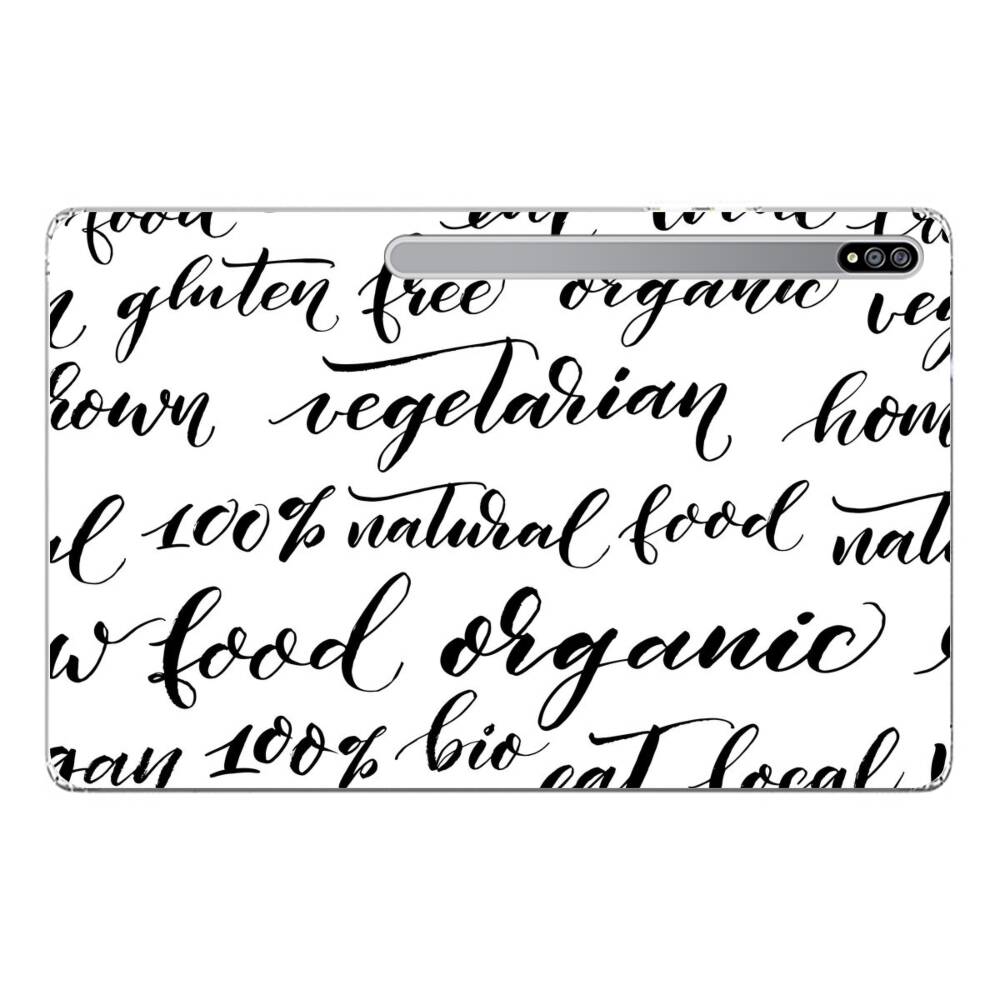 food eat local
gluten free organic veg
rown vegetarian hom
al 100% natural food natu
w food organic
gan 100% bio eat local